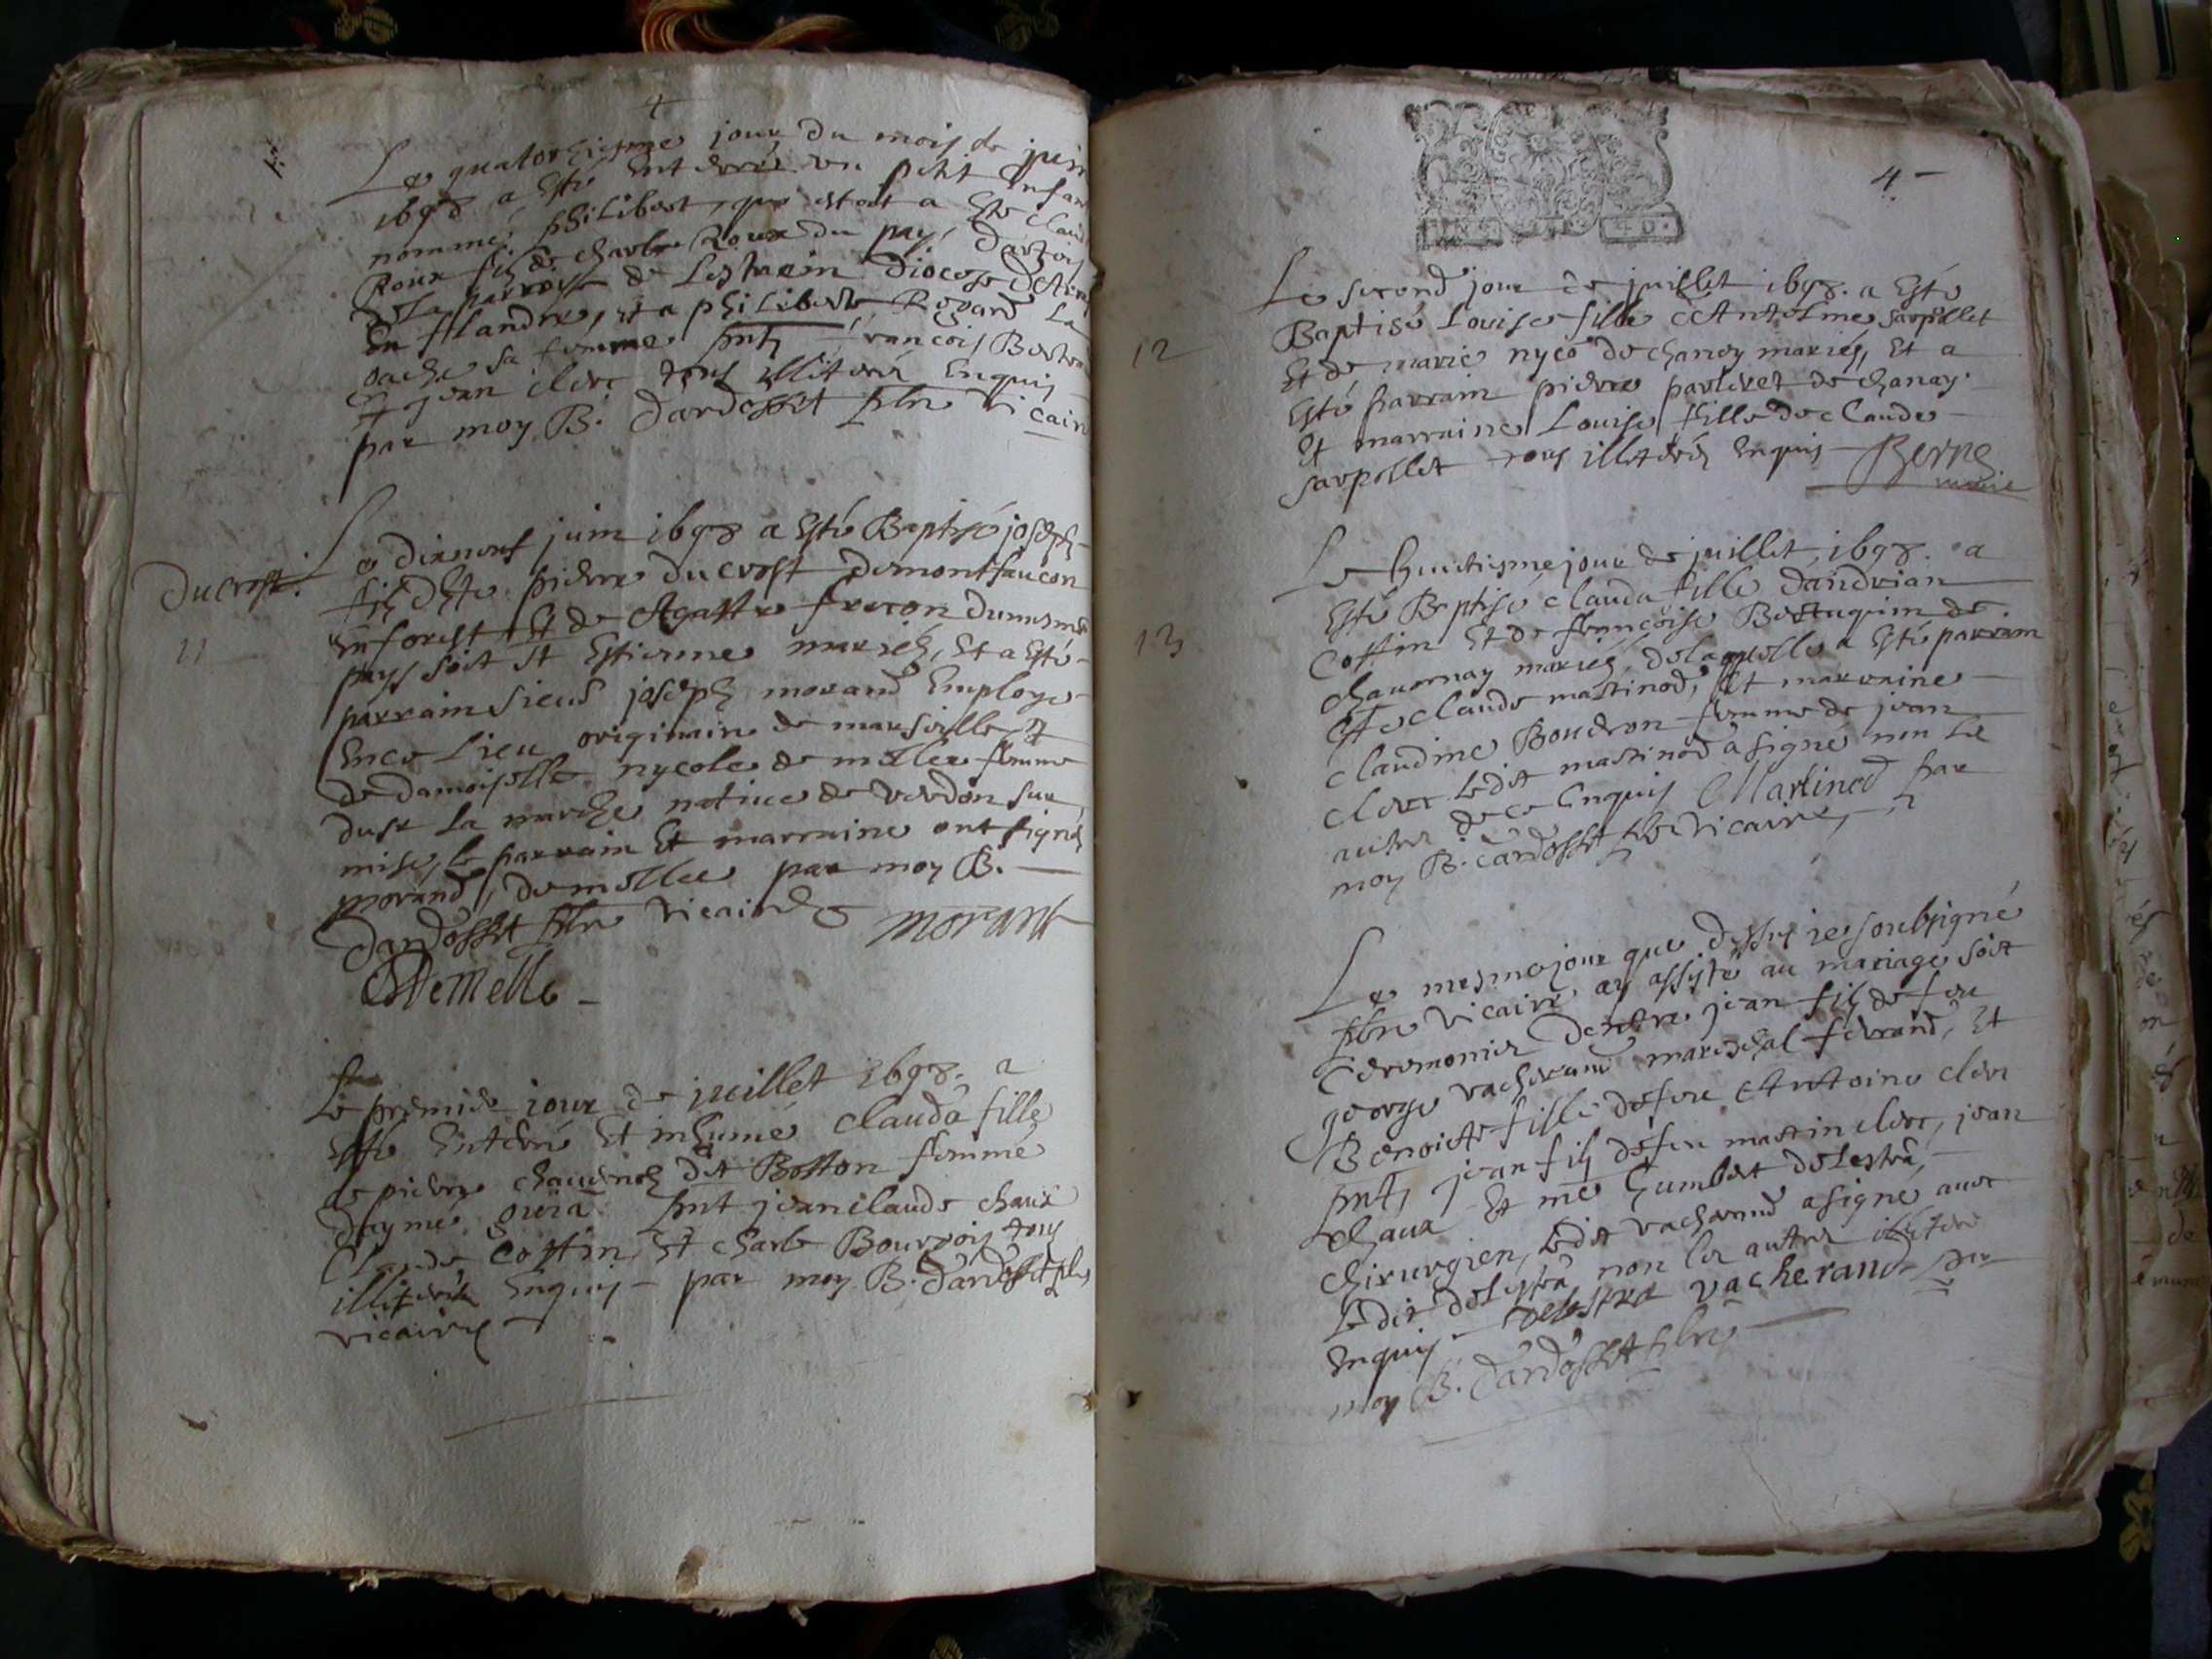 4
Le quatorziesme jour du mois de juin
1698 a esté enterré un petit enfan
nommé philibert, qui estoit a
Roux filz de charle Roux du pays dartois
de la parroisse de Lestrem diocese
en fflandre, et a philiberte Rogard La
sa femme pntz francois
et jean clerc tous illiterés enquis
par moy B. Dardosset pbre vicaire
Ducrost.
11
Le dixneuf juin 1698 a esté Baptisé joseph
filz d'hte pierre ducrost de montfaucon
en forest et de Agathe freron du mesme
pays soit st Estienne mariés, et a esté
parrain sieur joseph morand Employé
en ce Lieu originaire de marseille, et
de damoiselle nycole de mellee femme
dusr La marche native de verdon sur
mise, le parrain et marraine ont signés
morand, de mellee par moy B.
Dardosset pbre vicaire
morant
De Melle
Le premier jour de juillet 1698. a
esté enterré et inhumé clauda fille
de pierre chauenoz dit Botton femme
daymé goüia pnt jean claude chaux
Claude Cottin, et charle Bourgois tous
illiterés enquis par moy B. Dardosset pbre
vicaire
4
12
Le second jour de juillet 1698. a esté
Baptisé Louise fille d'Antelme sarpollet
et de marie nyco de chanay mariés, et a
esté parrain pierre parleret de chanay
et marraine Louise fille de Claude
sarpollet tous illiterés enquis
Berne
13
Le huictiesme jour de juillet, 1698. a
esté Baptisé clauda fille dandrian
Cottin et de francoise Bertaquin de
chauornay mariés, de laquelle a esté parrain
hte claude martinod, et marraine
claudine Boudron femme de jean
clerc ledit martinod a signé non les
autres de ce enquis Martinod par
moy B. Dardosset pbre vicaire,
Le mesme jour que dessus je soubsigné
pbre vicaire ay assisté au mariage soit
ceremonies dentre jean filz de feu
george vacherand mareschal ferrand, et
Benoicte fille de feu Antoine clerc
pntz jean filz de feu martin clerc, jean
chaux et me humbert delestra,
chirurgien, ledit vacherand a signé avec
ledit delestra non les autres illiteré
enquis delestra vacherand par
moy B. Dardosset pbre